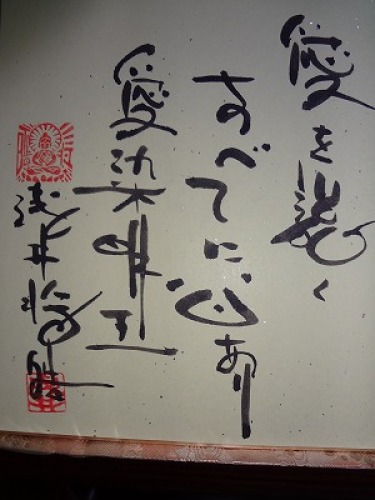 愛を説く
すべてに心あり
愛染明王
浅井